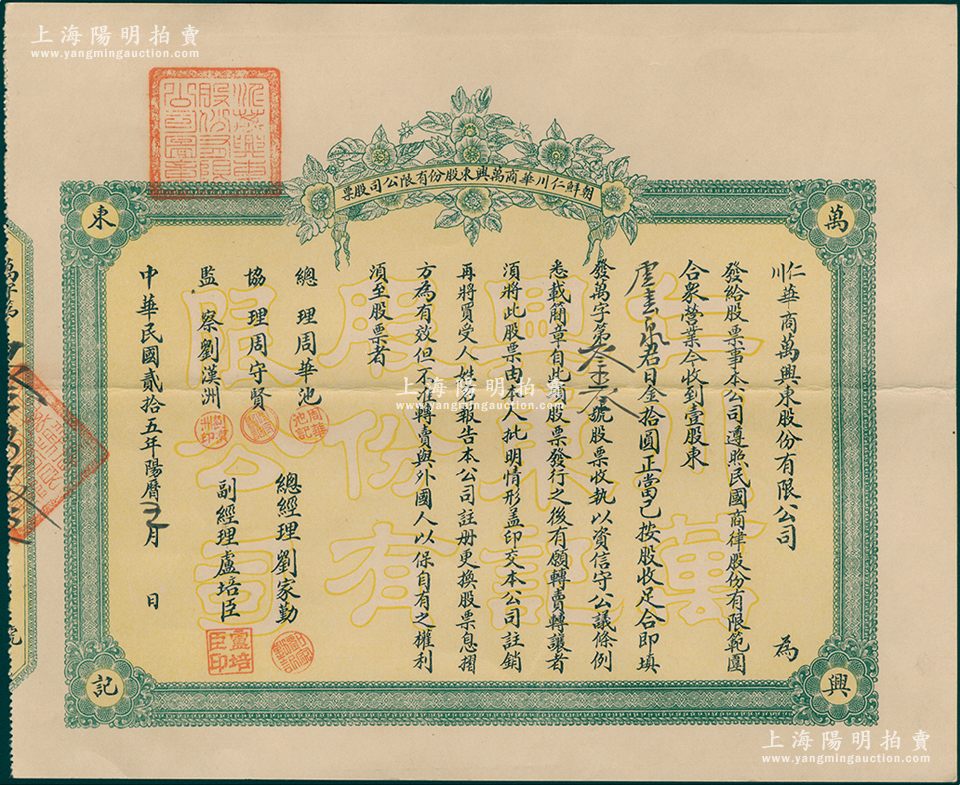 上海陽明拍賣
www.yangmingauction.com
朝鮮仁川華商萬興東股份有限公司股票
萬
興
東
記
仁川華商萬興東股份有限公司 為
發給股票事本公司遵照民國商律股份有限範圍
合衆營業今收到壹股東
君日金拾圓正當已按股收足合即填
發萬字第叁 號股票收執以資信守公議條例
悉載簡章自此項股票發行之後有願轉賣轉讓者
須將此股票由本人批明情形盖印交本公司註銷
再將買受人姓名報告本公司註册更換股票息摺
方為有效但不准轉賣與外國人以保自有之權利
須至股票者
總理周華池
周華池記
協理周守賢
監察劉漢洲
劉漢洲印
總經理劉家勤
副經理盧培臣
盧培臣印
中華民國貳拾五年陽曆 月 日
仁川華商萬興東記股份有限公司
上海陽明拍賣
www.yangmingauction.com
上海陽明拍賣
www.yangmingauction.com